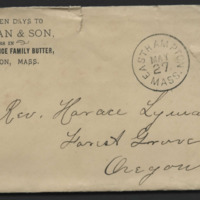 EN DAYS TO
AN & SON,
FAMILY BUTTER,
ON, MASS.
EASTHAMPTON
MAY
27
MASS.
Rev. Horace Lyman
Forest Grove
Oregon